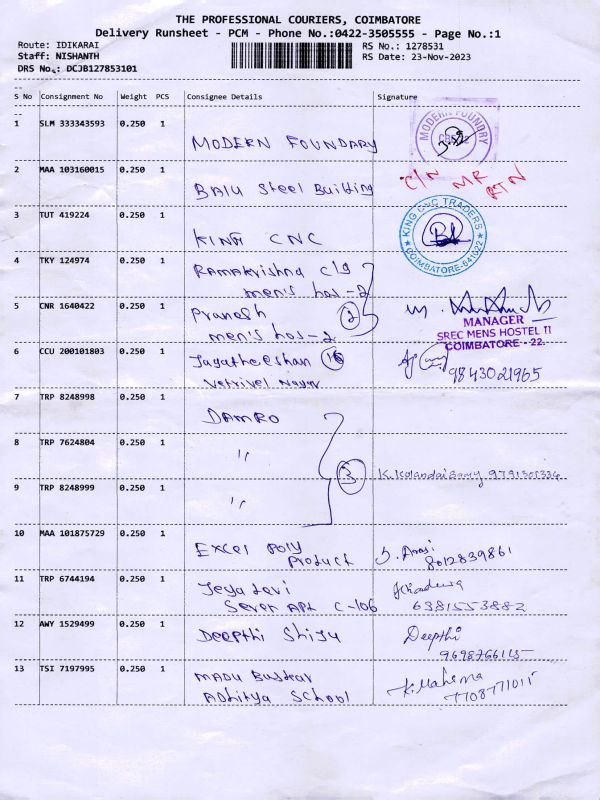 THE PROFESSIONAL COURIERS, COIMBATORE
Delivery Runsheet - PCM - Phone No.:0422-3505555 - Page No.:1
Route: IDIKARAI
RS No.: 1278531
Staff: NISHANTH
RS Date: 23-Nov-2023
DRS No.: DCJB127853101
--
S No Consignment No Weight PCS Consignee Details Signature
--
1 SLM 333343593 0.250 1
MODERN FOUNDARY
MODERN FOUNDRY
2 MAA 103160015 0.250 1
BALU Steel Building
C/N MR RTN
3 TUT 419224 0.250 1
KING CNC
KING CNC TRADERS
COIMBATORE-641022
4 TKY 124974 0.250 1
Ramakrishna c/o
men's hos-2
5 CNR 1640422 0.250 1
Pranesh
men's hos-2
2
MANAGER
SREC MENS HOSTEL II
COIMBATORE - 22.
6 CCU 200101803 0.250 1
Jagatheeshan 16
Vetrivel Nagar
9843021965
7 TRP 8248998 0.250 1
DAMRO
8 TRP 7624804 0.250 1
"
3 K. Kolandaisamy
9 TRP 8248999 0.250 1
"
10 MAA 101875729 0.250 1
Excel Poly
Product
8012839861
11 TRP 6744194 0.250 1
Jeyadevi
Seven Apt C-106
6381553882
12 AWY 1529499 0.250 1
Deepthi Shiju
Deepthi
13 TSI 7197995 0.250 1
Madu Buskar
Adhitya School
K. Mahema
7708771011